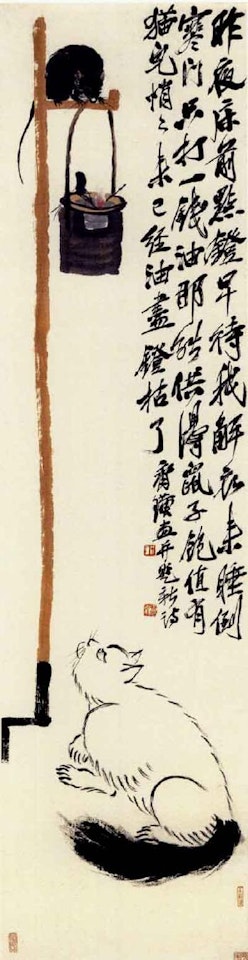 昨夜床前點鐙早待我解衣未睡倒
寒门只打一錢油那能供得鼠子飽值有
猫兒悄々來已經油盡鐙枯了
齊璜畫并題新詩